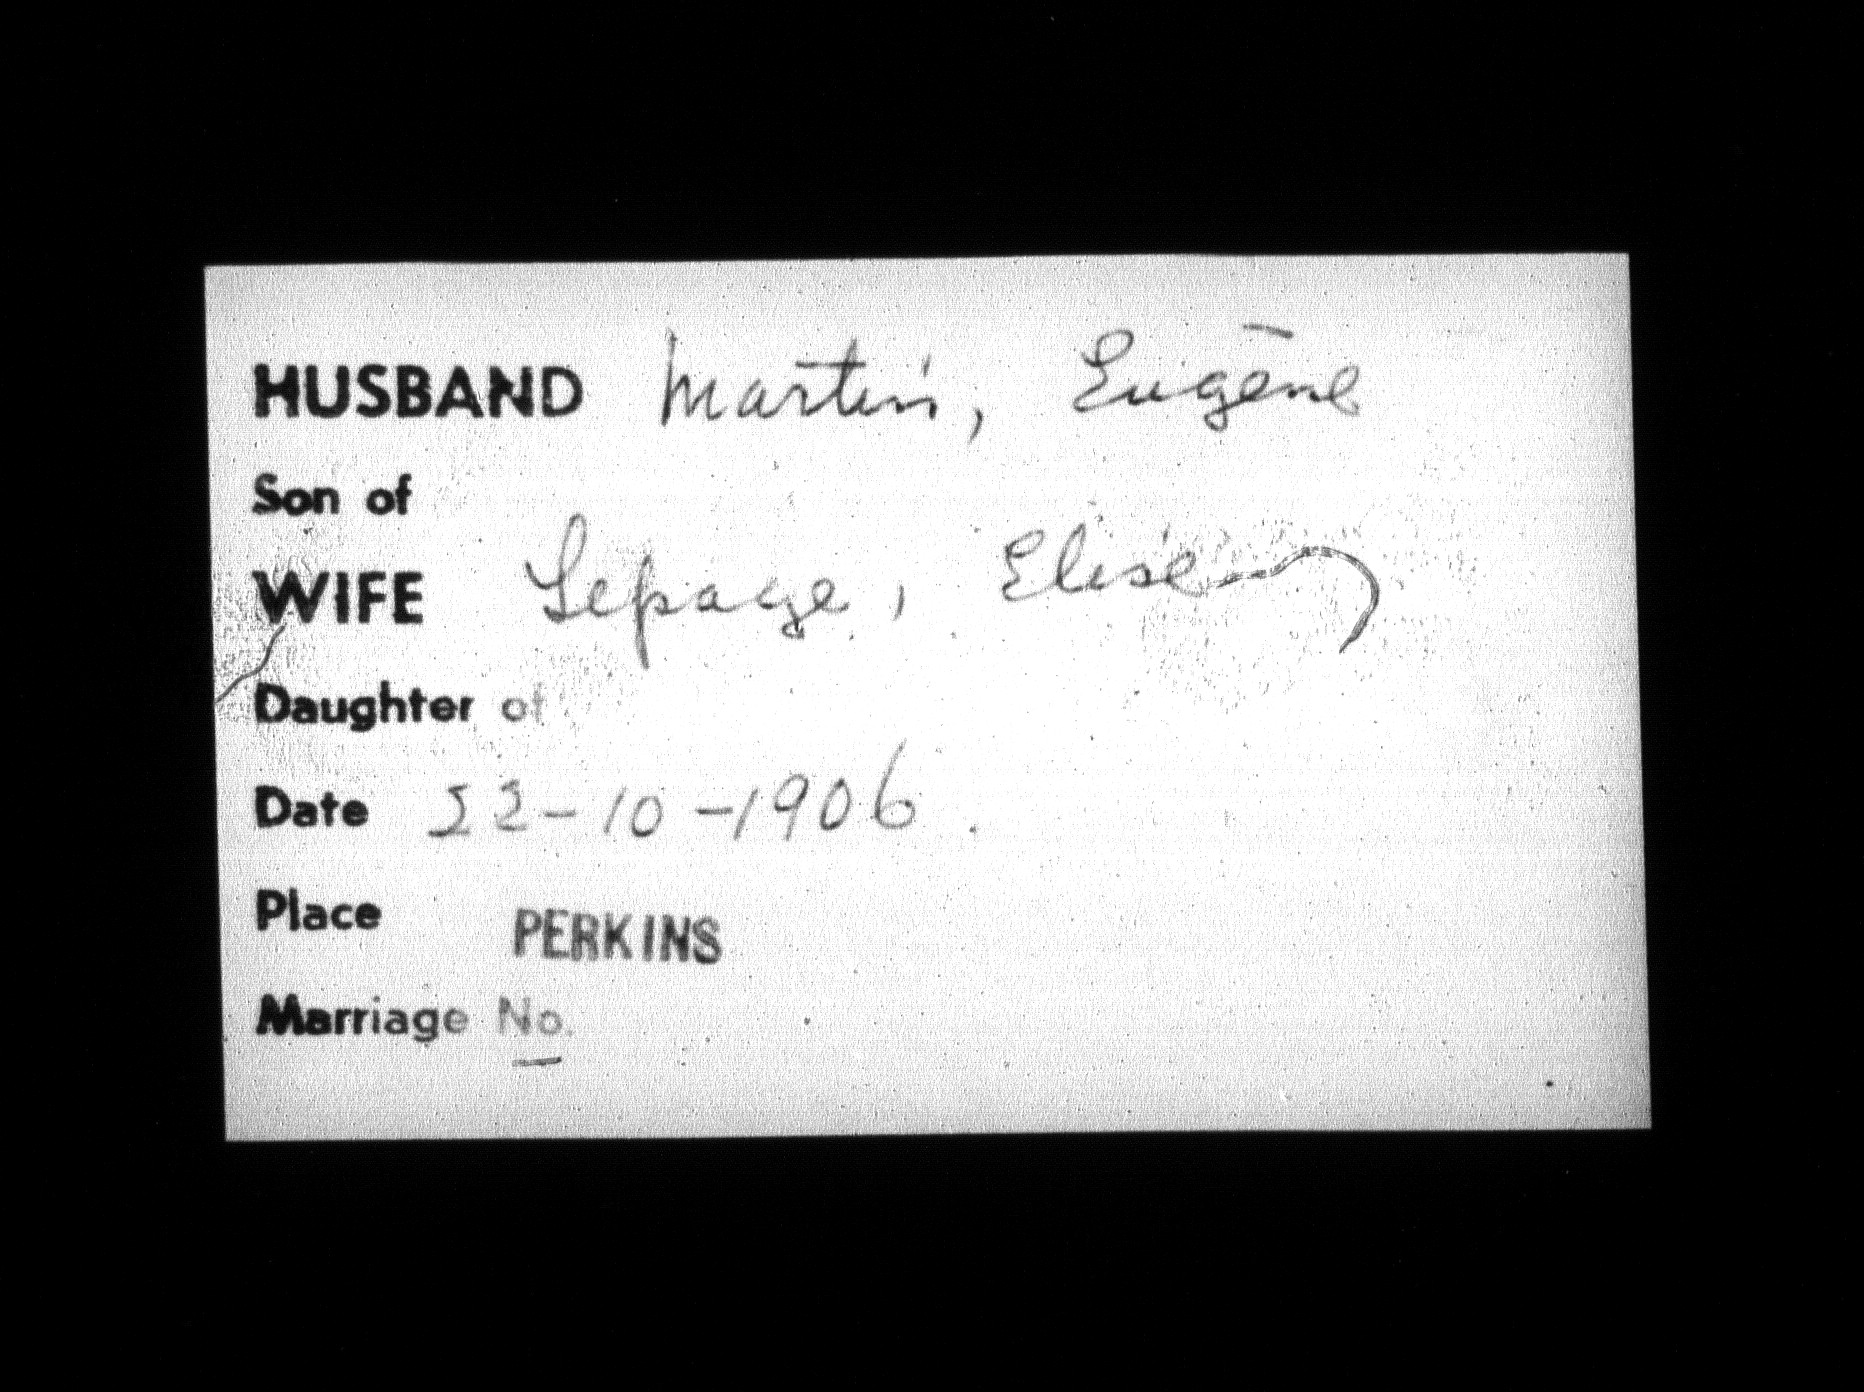 HUSBAND Martin, Eugène
Son of
WIFE Lepage, Elise
Daughter of
Date 22-10-1906.
Place PERKINS
Marriage No.